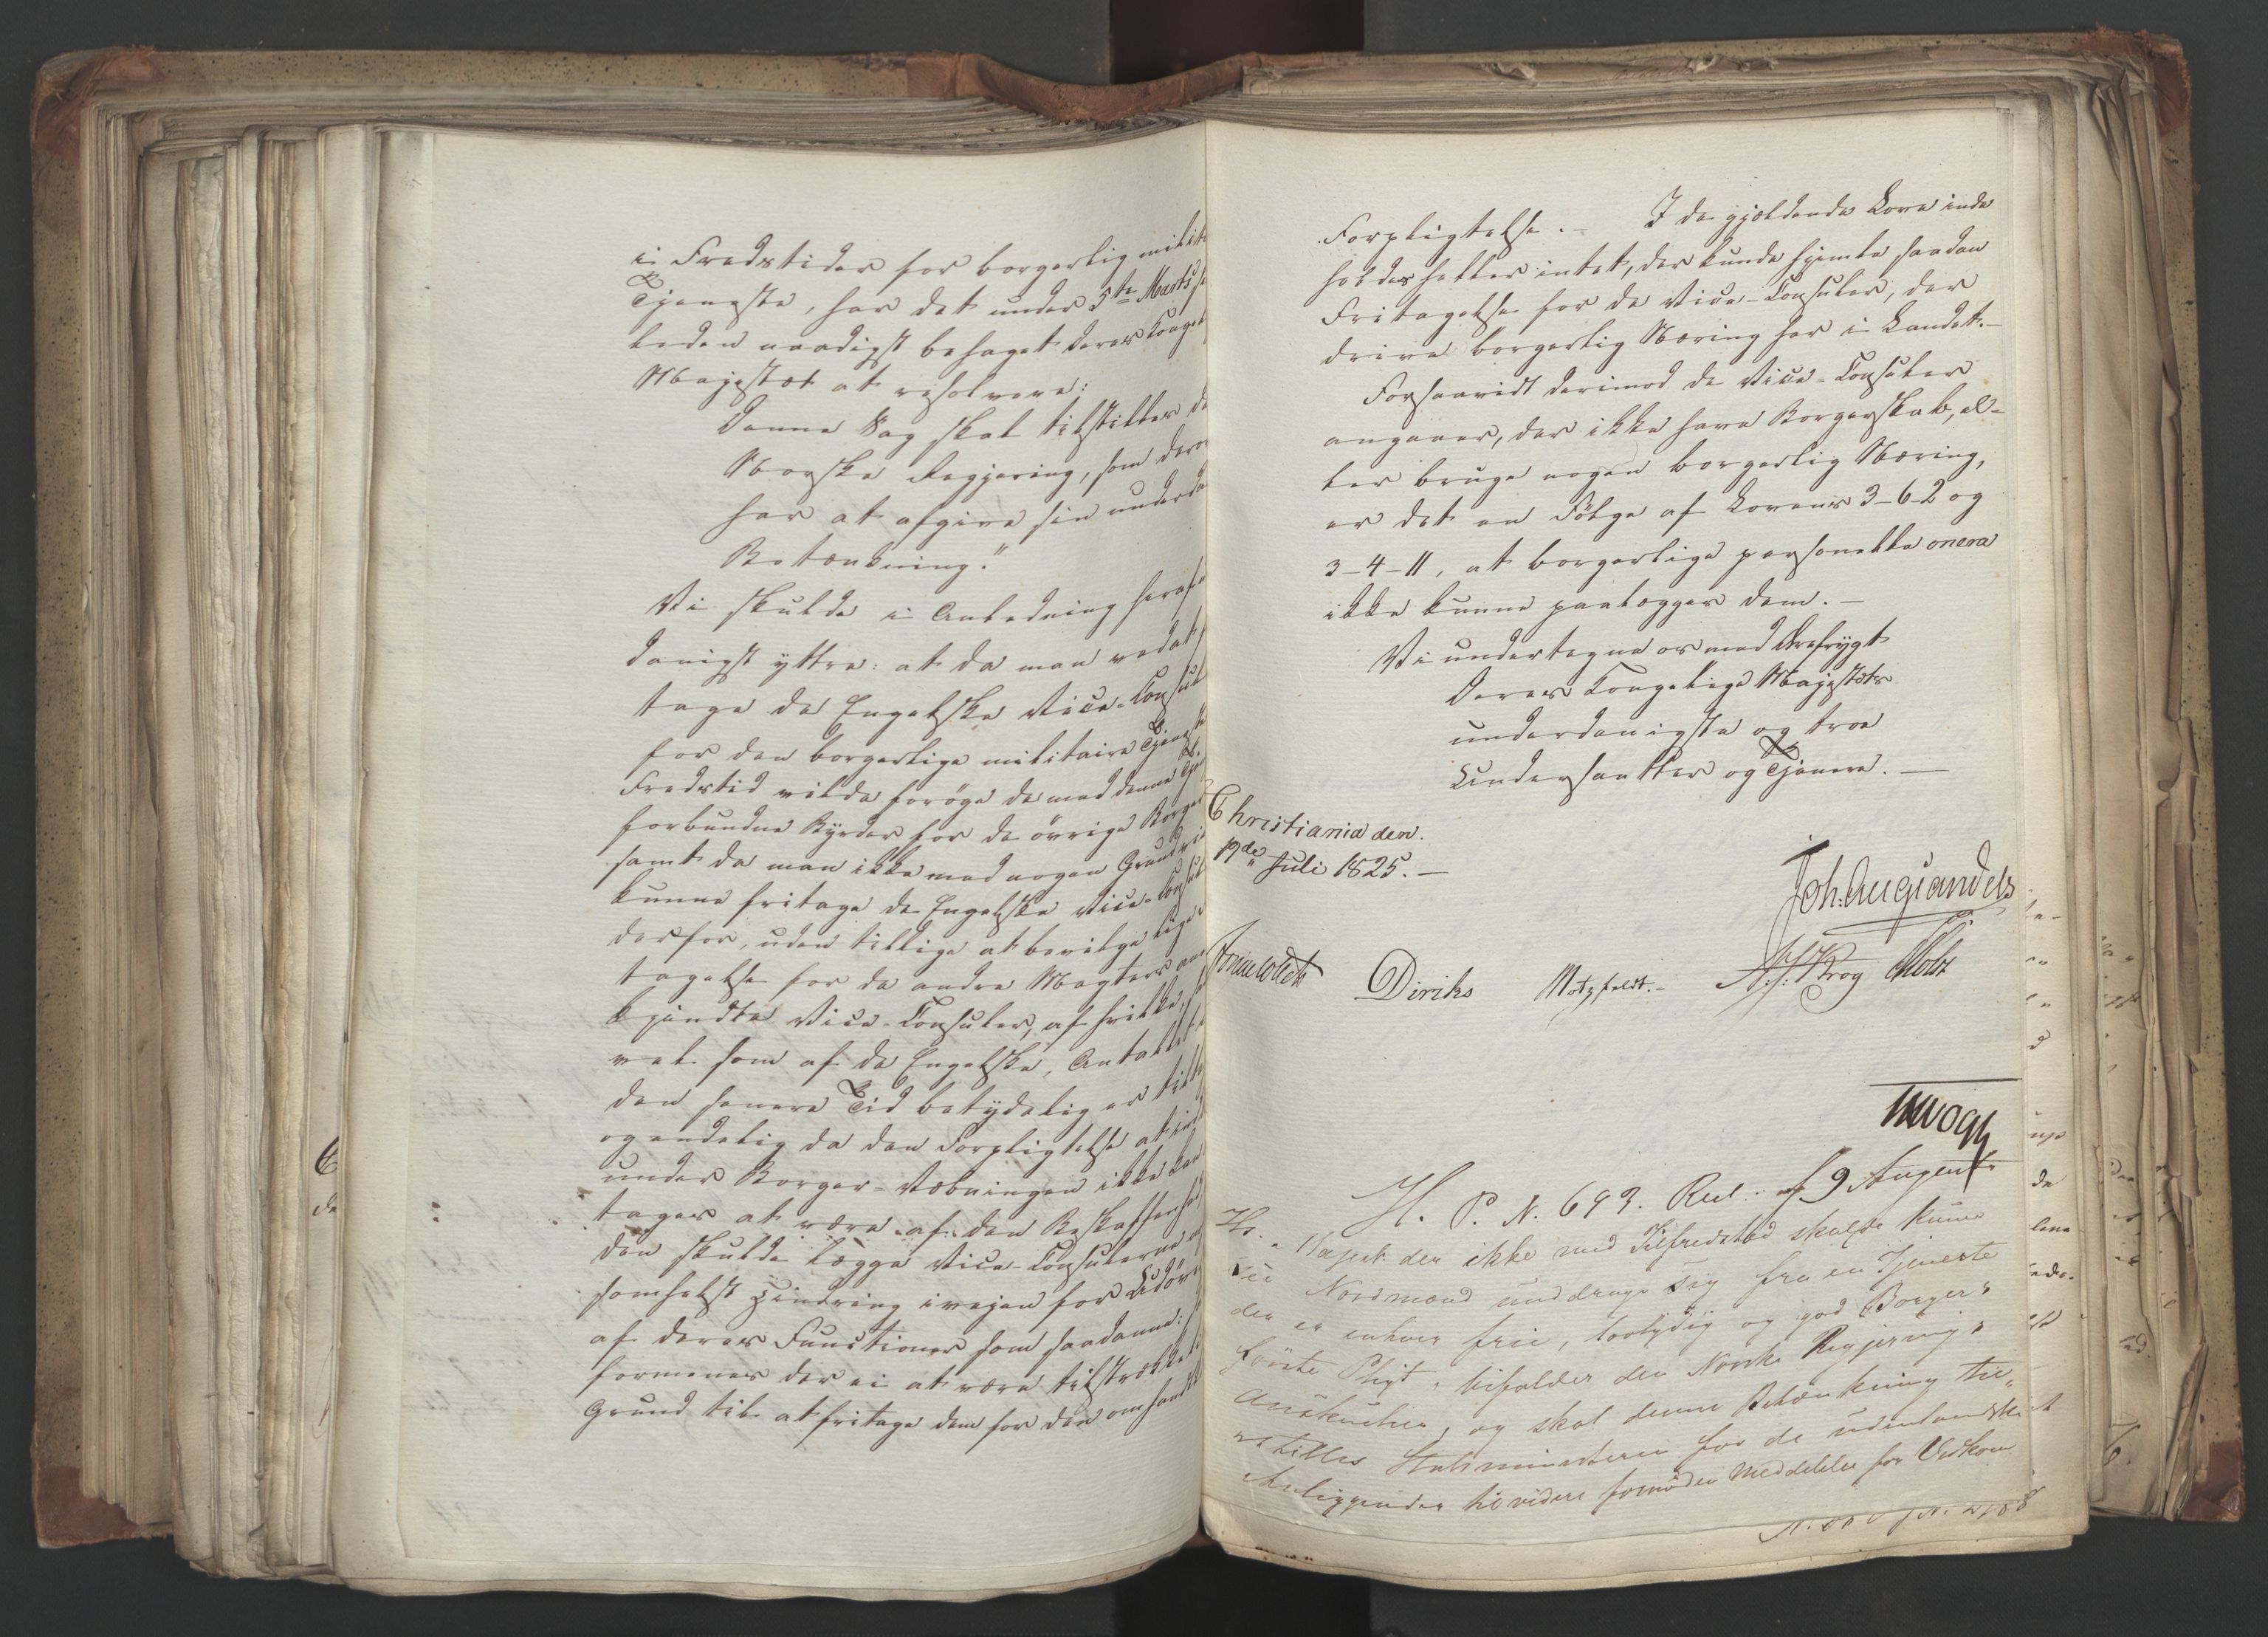 i Fredstider for borgerlig milit
Tjeneste, har det under 5te Marts
leden naadigst behaget Deres Kongel
Majestæt at resolvere:
Denne Sag skal tilstilles d
Norske Regjering, som dero
har at afgive sin underd
Betænkning."
Vi skulde i Anledning heraf
danigst yttre: at da man ved at
tage de Engelske Vice-Consul
for den borgerlige militaire Tjeneste
Fredstid vilde forøge de med denne Tje
forbundne Byrder for de övrige Borger
samt da man ikke med nogen Grund vil
kunne fritage de Engelske Vice-Consul
derfor, uden tillige at bevilge lige
tagelse for de andre Magters an
kjendte Vice-Consuler, af hvilke,
vel som af de Engelske, Antallet
den senere Tid betydelig er til
og endelig da den Forpligtelse at
under Borger-Væbningen ikke kan
tages at være af den Beskaffenhed
den skulde lægge Vice-Consulerne
somhelst Hindring ivejen for Udöv
af deres Functioner som saadanne:
formenes der ei at være tilstrækkeli
Grund til at fritage dem for den omhandl
Forpligtelse. - I de gjældende Love inde
holdes heller intet, der kunde hjemle saadan
Fritagelse for de Vice-Consuler, der
drive borgerlig Næring her i Landet.-
Forsaavidt derimod de Vice-Consuler
angaaer, der ikke have Borgerskab, el-
ler bruge nogen borgerlig Næring,
er det en Fölge af Lovens 3-6-2 og
3-4-11, at borgerlige personelle onera
ikke kunne paalægges dem. -
Vi undertegne os med Ærefrygt
Deres Kongelige Majestæts
underdanigste og troe
Undersaatter og Tjenere. -
Christiania den
19de Juli 1825. -
Diriks Motzfeldt.- Krog Holst
H. P. N. 693. Res. af 9 August
der ikke med Tilfredshed skulde kunne
Nordmænd unddrage sig fra en Tjeneste
der er enhver frie, lovlydig og god Borgers
förste Pligt, bifalder den Norske Regjerings
Anskuelser, og skal denne Betænkning til-
stilles Statsministeren for de udenlandske
Anliggender til videre fornöden Meddelelse for Vedkom